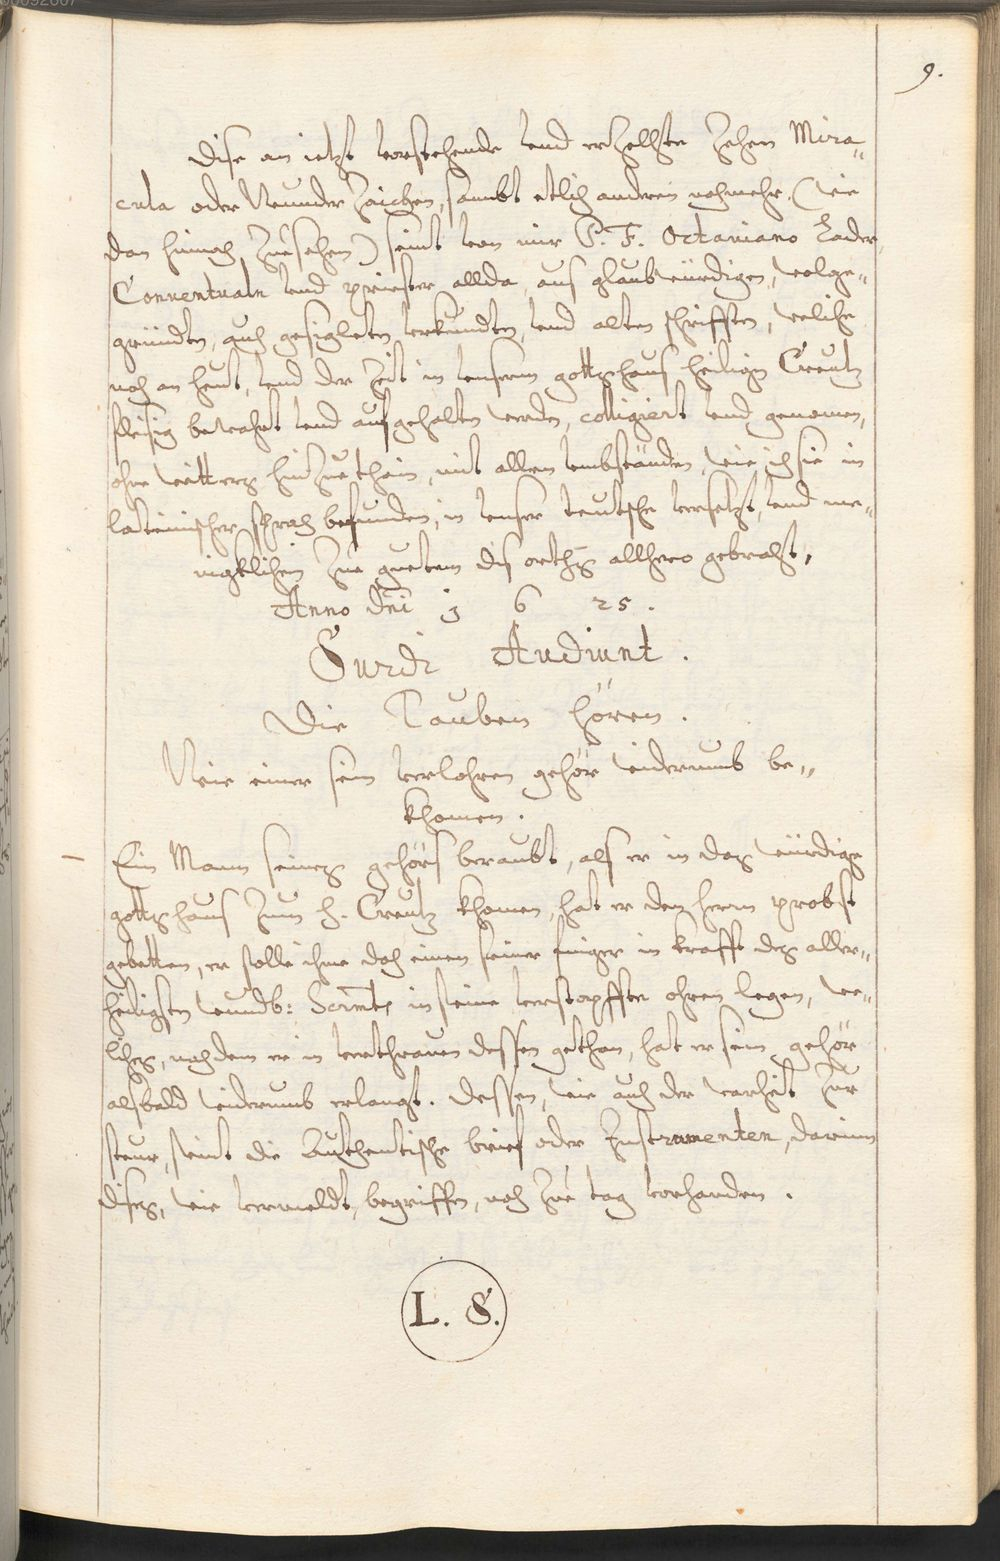 9.
Dise an ietzt vorstehende vnd erzellte zehen Mira-
cula oder Wunder Zaichen, sambt etlich anderen nochmehr, (wie
dan hinnach zuesehen) seint von mir P. F. Octaviano Lader,
Conventualn vnd priester allda, aus glaubwürdigen, wolge-
gründten, auch gesigleten vrkundten, vnd alten schrifften, weliche
noch an heut, vnd der Zeit in vnserm gottshaus heilig Creutz
fleisig bewahrt vnd aufgehalten werden, colligiert vnd genomen,
ohne witters hinzuethain, mit allen vmbständen, wie ich sie in
lateinischer sprach befunden, in vnser teutsche versetzt, vnd me-
nigklichen zue guetem dis orths allhero gebracht,
Anno dni 1625.
Surdi Audiunt.
Die Tauben hören.
Wie einer sein verlohren gehör widerumb be-
khomen.
Ein Mann seines gehörs beraubt, als er in das würdige
gottshaus zum h. Creutz khomen, hat er den herrn probst
gebetten, er solle ihme doch einen seiner finger in krafft des aller-
heiligsten wundb: Scrmts in seine verstopffte ohren legen, we-
liches, nachdem er in vertrauen dessen gethan, hat er sein gehör
alsbald widerumb erlangt. Dessen, wie auch der warheit zur
steur, seint die Authentische brief oder Instrumenten, darinn
dises, wie vermeldt, begriffen, noch zue tag vorhanden.
L. S.